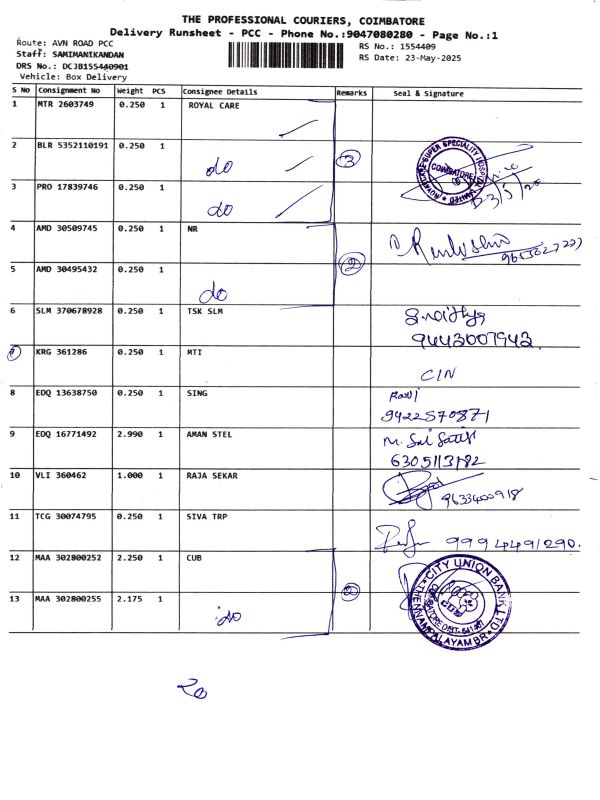 THE PROFESSIONAL COURIERS, COIMBATORE
Delivery Runsheet - PCC - Phone No.:9047080280 - Page No.:1
Route: AVN ROAD PCC
RS No.: 1554409
Staff: SAMIMANIKANDAN
RS Date: 23-May-2025
DRS No.: DCJB155440901
Vehicle: Box Delivery
S No Consignment No Weight PCS Consignee Details Remarks Seal & Signature
1 MTR 2603749 0.250 1 ROYAL CARE
2 BLR 5352110191 0.250 1 do 3
COIMBATORE
3 PRO 17839746 0.250 1 do
4 AMD 30509745 0.250 1 NR
5 AMD 30495432 0.250 1 do 2
6 SLM 370678928 0.250 1 TSK SLM
9443007943
KRG 361286 0.250 1 MTI C/N
8 EDQ 13638750 0.250 1 SING Ravi
9422570871
9 EDQ 16771492 2.990 1 AMAN STEL
6305113182
10 VLI 360462 1.000 1 RAJA SEKAR 9633400918
11 TCG 30074795 0.250 1 SIVA TRP 9994491290.
12 MAA 302800252 2.250 1 CUB
CITY UNION BANK LTD
13 MAA 302800255 2.175 1 do